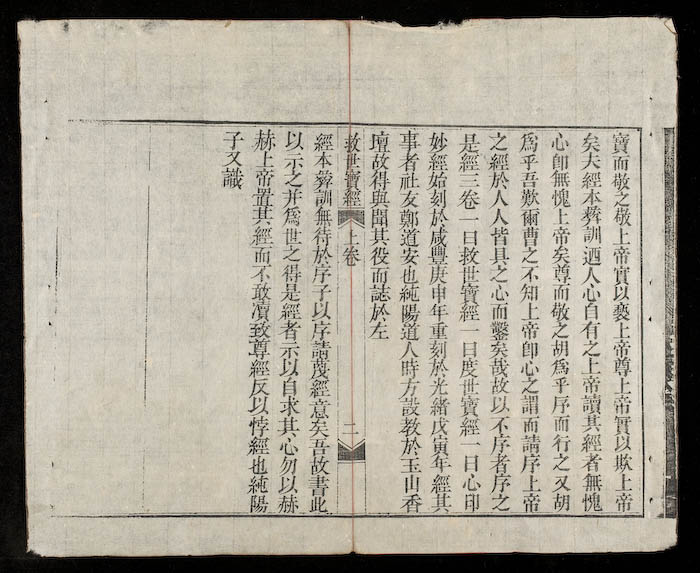 寶而敬之敬上帝實以褻上帝尊上帝實以欺上帝
矣夫經本彛訓迺人心自有之上帝讀其經者無愧
心卽無愧上帝矣尊而敬之胡爲乎序而行之又胡
爲乎吾歎爾曹之不知上帝卽心之謂而請序上帝
之經於人人皆具之心而鑿矣哉故以不序者序之
是經三卷一曰救世寶經一曰度世寶經一曰心印
妙經始刻於咸豐庚申年重刻於光緒戊寅年經其
事者社友鄭道安也純陽道人時方設教於玉山香
壇故得與聞其役而誌於左
救世寶經 上卷 二
經本彛訓無待於序子以序請蔑經意矣吾故書此
以示之并爲世之得是經者示以自求其心勿以赫
赫上帝置其經而不敢瀆致尊經反以悖經也純陽
子又識